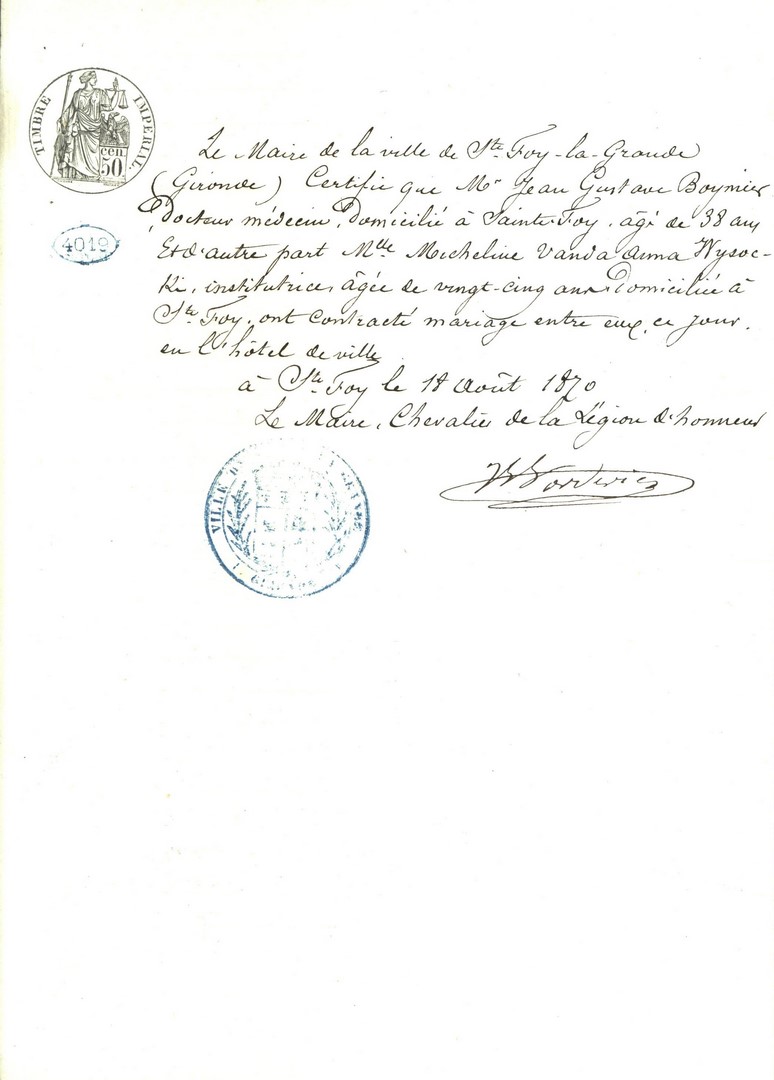 TIMBRE IMPERIAL.
cen
50
4019
Le Maire de la ville de Ste Foy-la-Grande
(Gironde) Certifie que Mr Jean Gustave Boymier
Docteur médecin, Domicilié à Sainte-Foy, âgé de 38 ans
Et d'autre part Mlle Micheline Vanda Anna Wysoc-
ki, institutrice, âgée de vingt-cinq ans Domiciliée à
Ste Foy, ont contracté mariage entre eux, ce jour,
en l'hôtel de ville
à Ste Foy le 18 Août 1870
Le Maire, Chevalier de la Légion d'honneur
VILLE